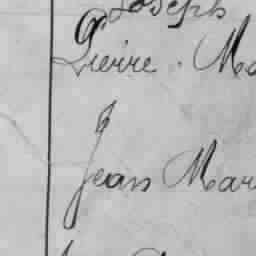 Joseph
Pierre . Ma
Jean Mar